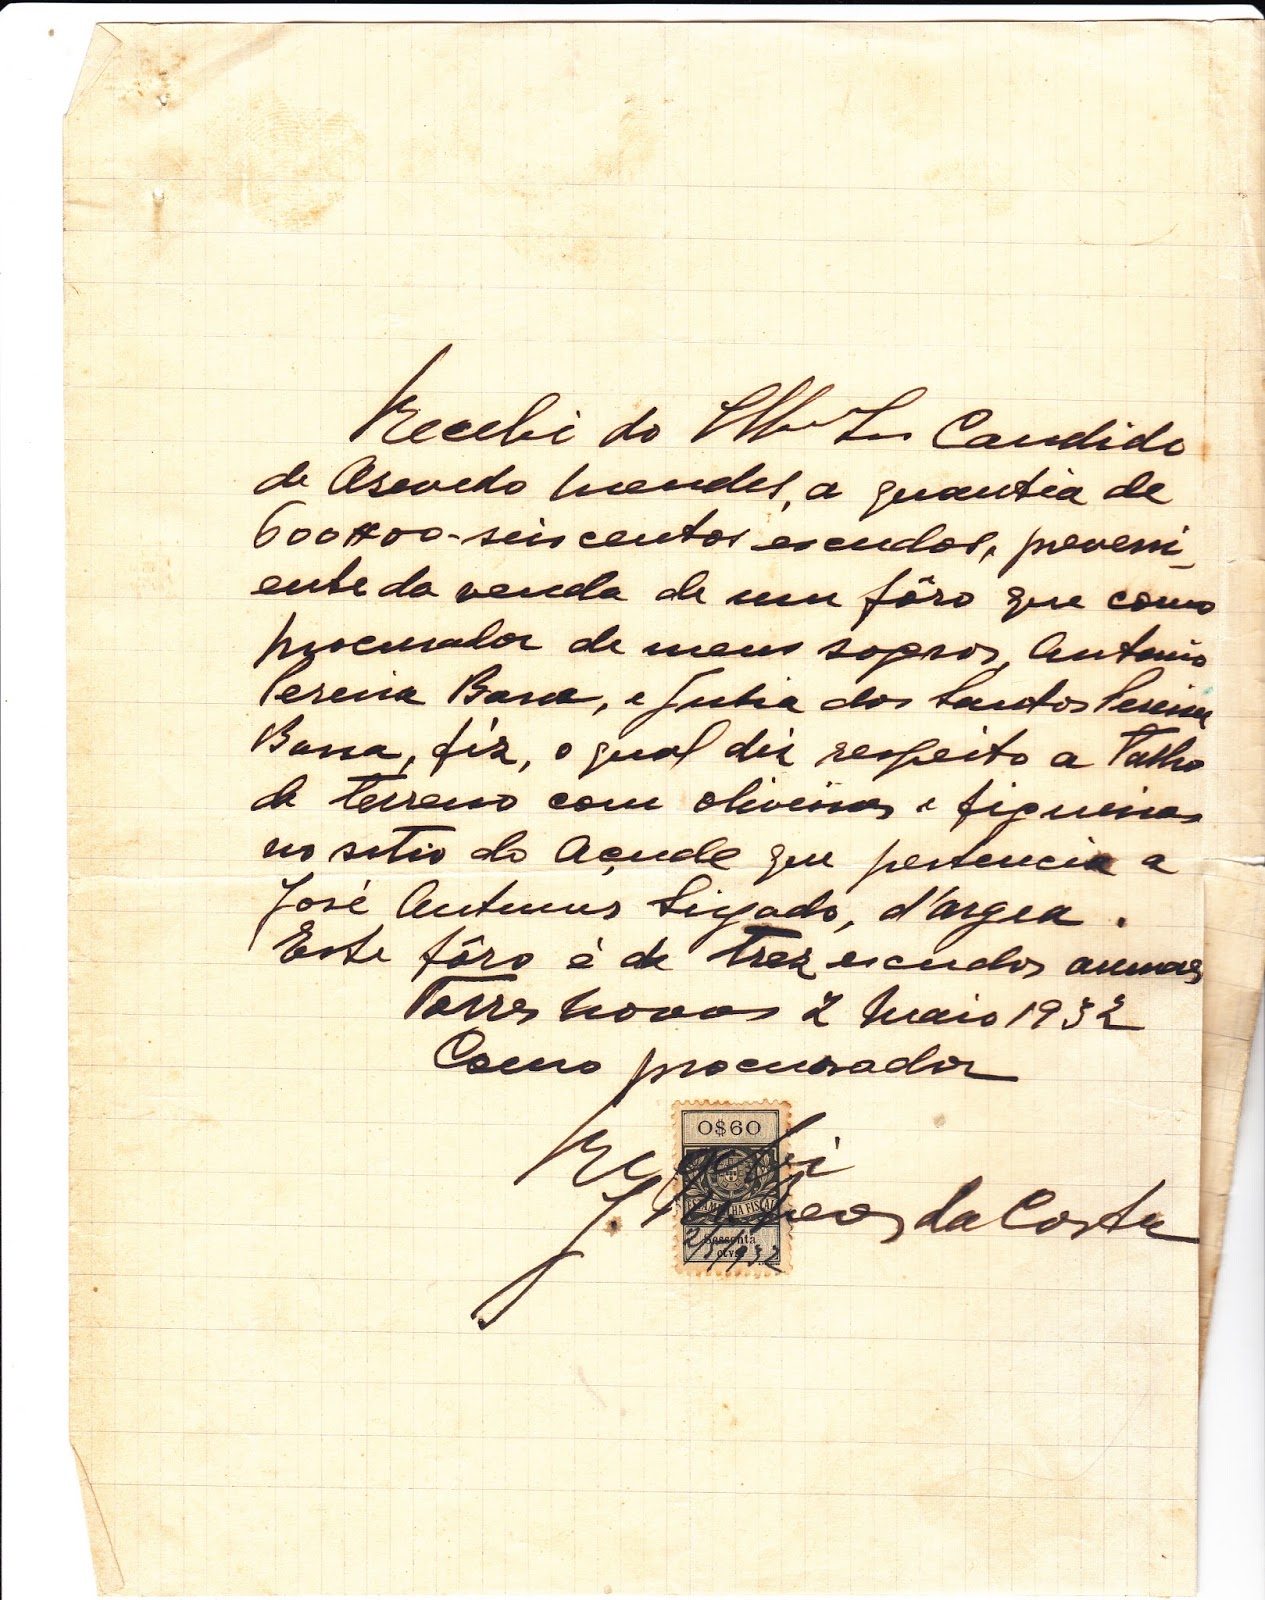 Recebi do Illmo Snr Candido
de Azevedo Mendes, a quantia de
600$00 - seiscentos escudos, proveni-
ente da venda de um fôro que como
procurador de meus sogros, Antonio
Pereira Bassa, e Julia dos Santos Pereira
Bassa, fiz, o qual diz respeito a Talho
de terreno com oliveiras e figueiras
no sitio do Açude que pertencia a
José Antunes Sigado, d'Argea.
Este fôro é de trez escudos annuaes
Torres Novas 2 Maio 1932
Como procurador
0$60
Recebi
ESTAMPILHA FISCAL
J. da Costa
Sessenta
ctvs
2/5/932